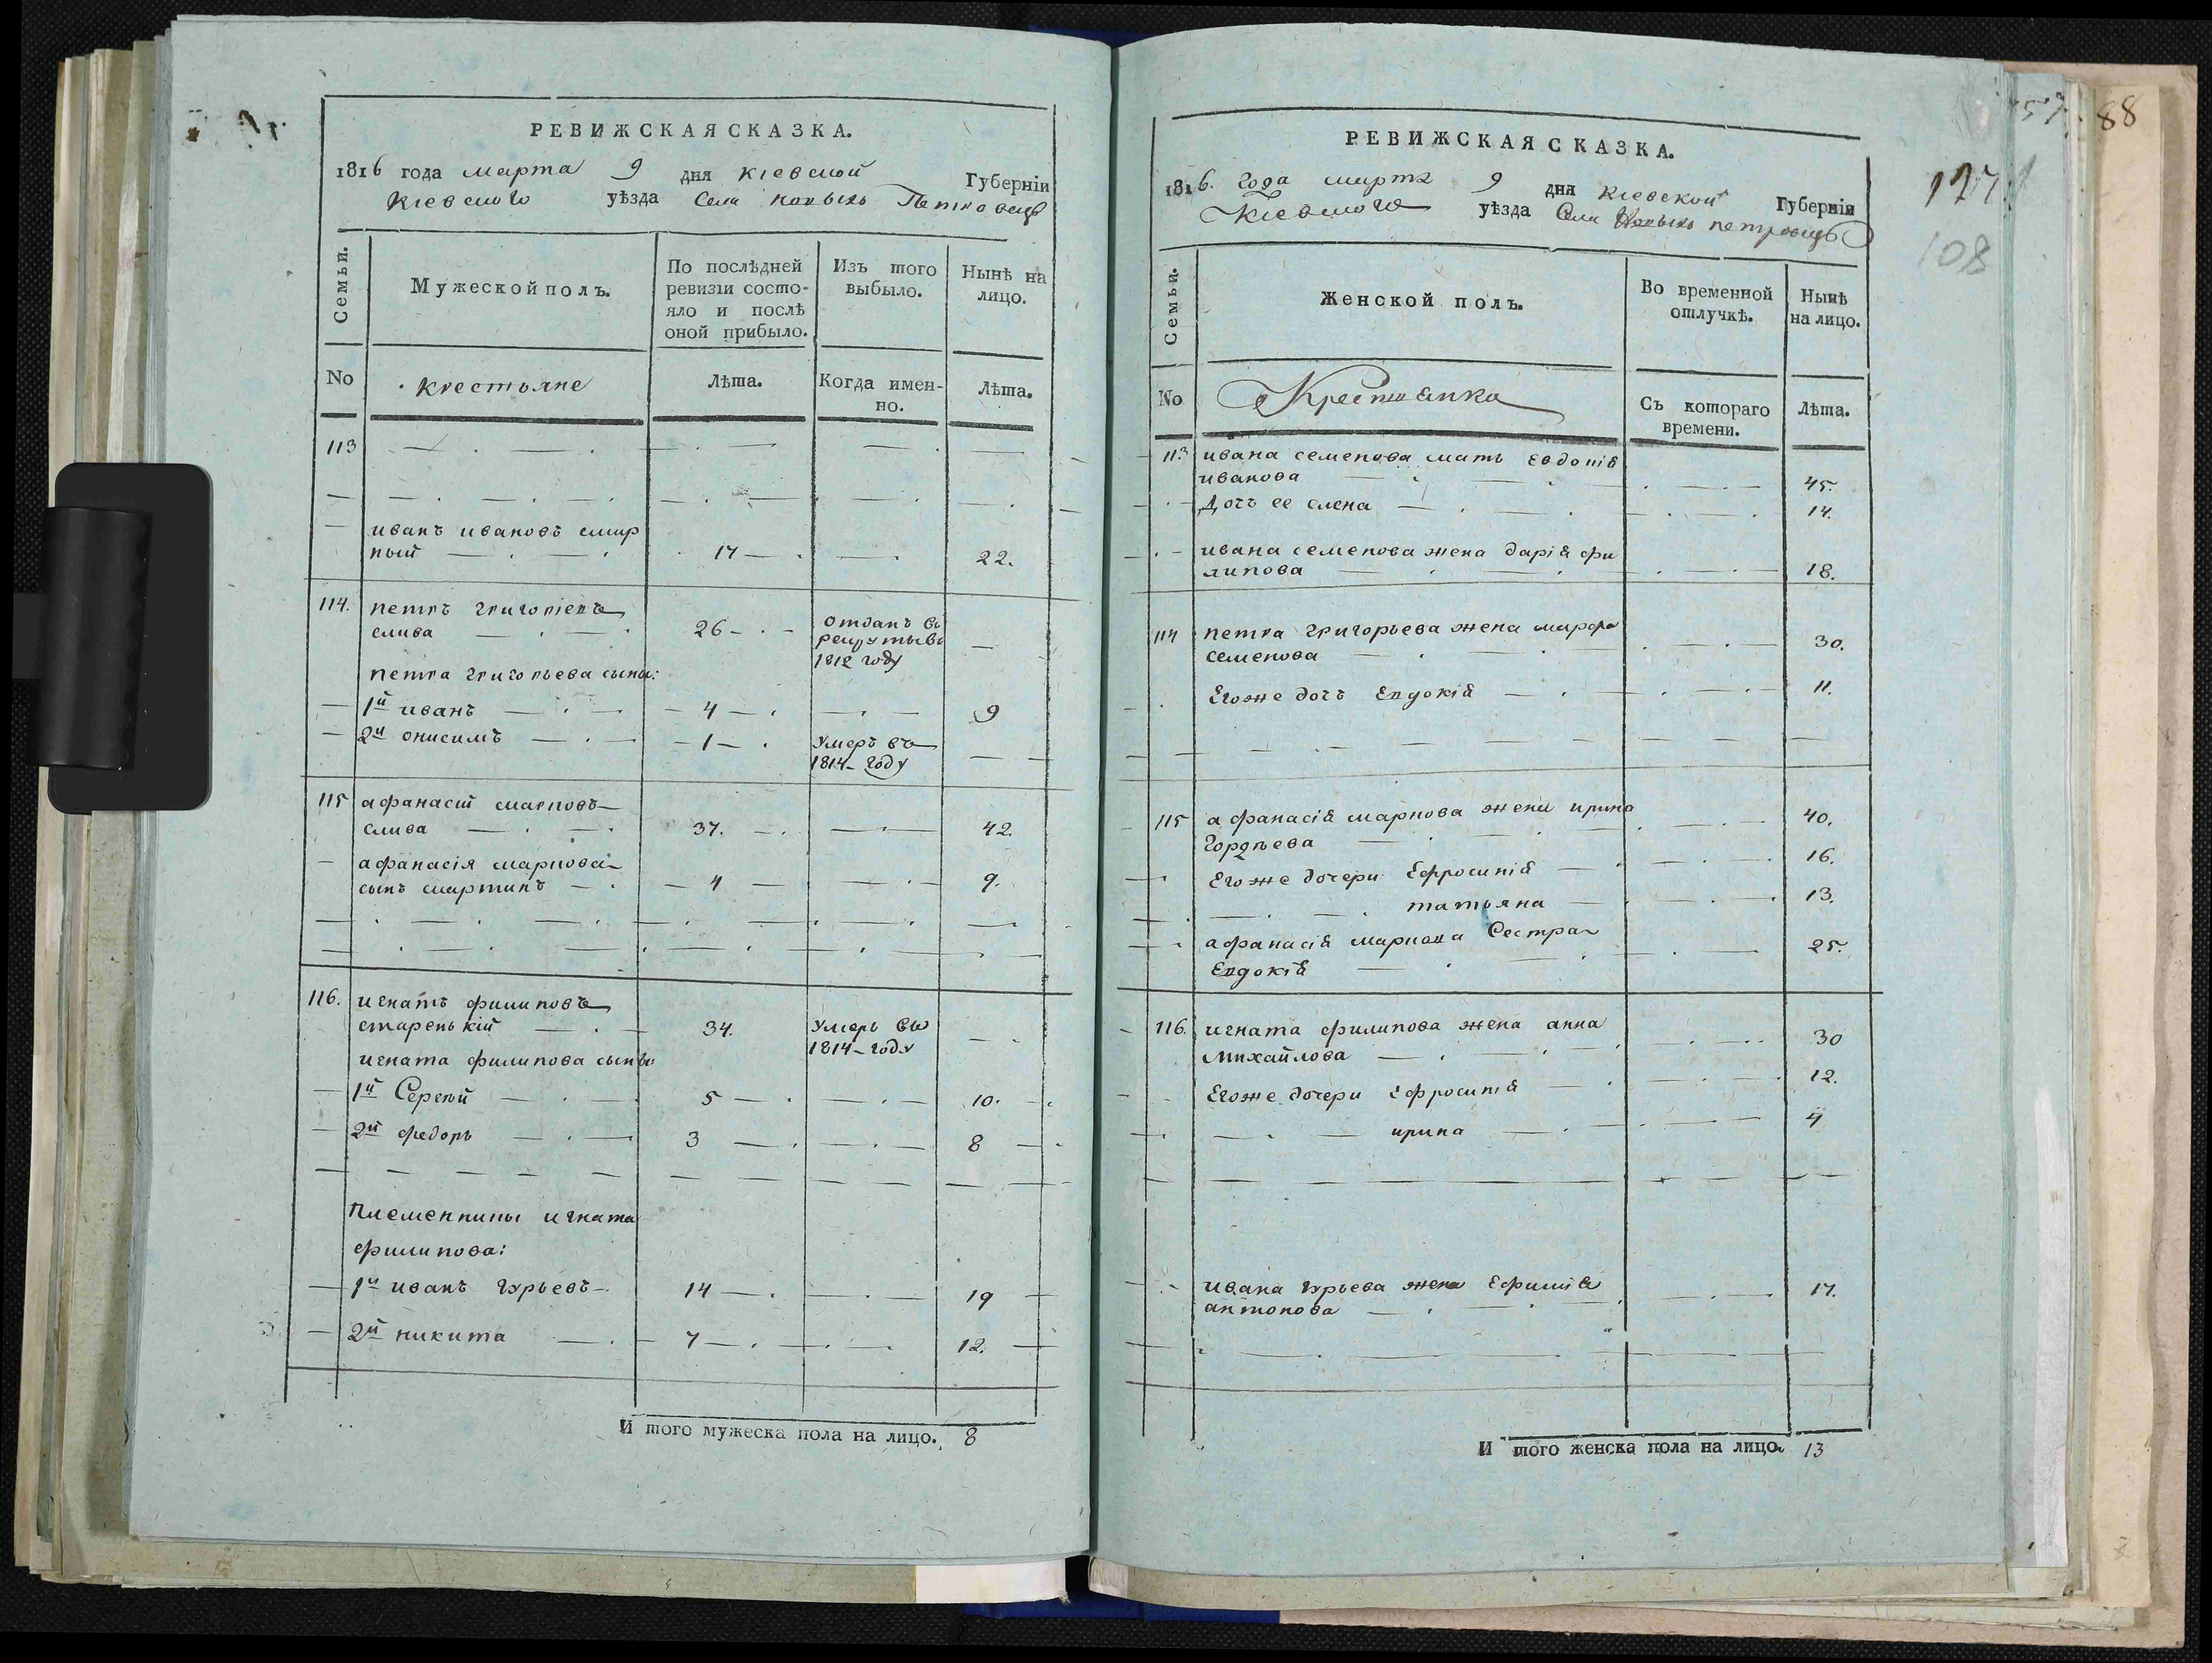 РЕВИЖСКАЯ СКАЗКА.
1816 года марта 9 дня кіевской Губерніи
Кіевского уѣзда Села новыхъ Петровецъ
Семьи.
Мужеской полъ.
По послѣдней ревизіи состо-
яло и послѣ
оной прибыло.
Изъ того
выбыло.
Нынѣ на
лицо.
No
крестьяне
Лѣта.
Когда имен-
но.
Лѣта.
113
иванъ ивановъ смир
ный 17 22.
114. петръ григоріевъ
слива 26 отданъ въ
рекрутывъ
1812 году
петра григорьева сыны:
1й иванъ 4 9
2й онисимъ 1 Умеръ въ
1814 году
115 афанасій марковъ
слива 37. 42.
афанасія маркова
сынъ мартинъ 4 9.
116. игнатъ филиповъ
старенькій 34. Умеръ въ
1814 году
игната филипова сыны:
1й Сергѣй 5 10.
2й федоръ 3 8
Племенники игната
филипова:
1й иванъ гурьевъ 14 19
2й никита 7 12.
И того мужеска пола на лицо. 8
88
127
108
РЕВИЖСКАЯ СКАЗКА.
1816. года марта 9 дня кіевской Губерніи
Кіевского уѣзда Села Новыхъ петровецъ
Семьи.
Женской полъ.
Во временной
отлучкѣ.
Нынѣ
на лицо.
No
Крестьянки
Съ котораго
времени.
Лѣта.
113 ивана семенова мать евдокія
иванова 45.
Дочь ее елена 14.
ивана семенова жена дарія фи
липова 18.
114 петра григорьева жена марфа
семенова 30.
Егоже дочь Евдокія 11.
115 афанасія маркова жена ирина
Гордѣева 40.
Егоже дочери Ефросинія 16.
татьяна 13.
афанасія маркова Сестра
Евдокія 25.
116. игната филипова жена анна
Михайлова 30
Егоже дочери Ефросинія 12.
ирина 4
ивана гурьева жена Ефимія
антонова 17.
И того женска пола на лицо. 13